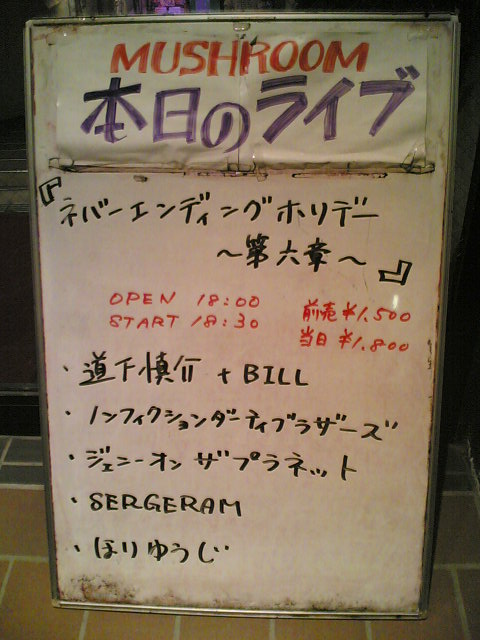 MUSHROOM
本日のライブ
『ネバーエンディングホリデー
～第六章～』
OPEN 18:00 前売 ¥1,500
START 18:30 当日 ¥1,800
・道下慎介 + BILL
・ノンフィクションダーティブラザーズ
・ジェニーオン ザプラネット
・SERGERAM
・ほりゆうじ